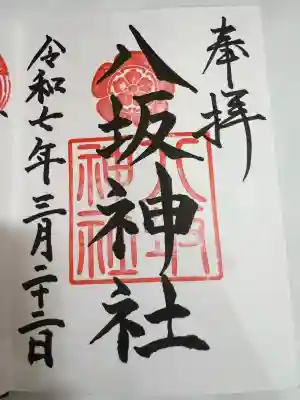 奉拝
八坂神社
八坂神社
令和七年三月二十二日